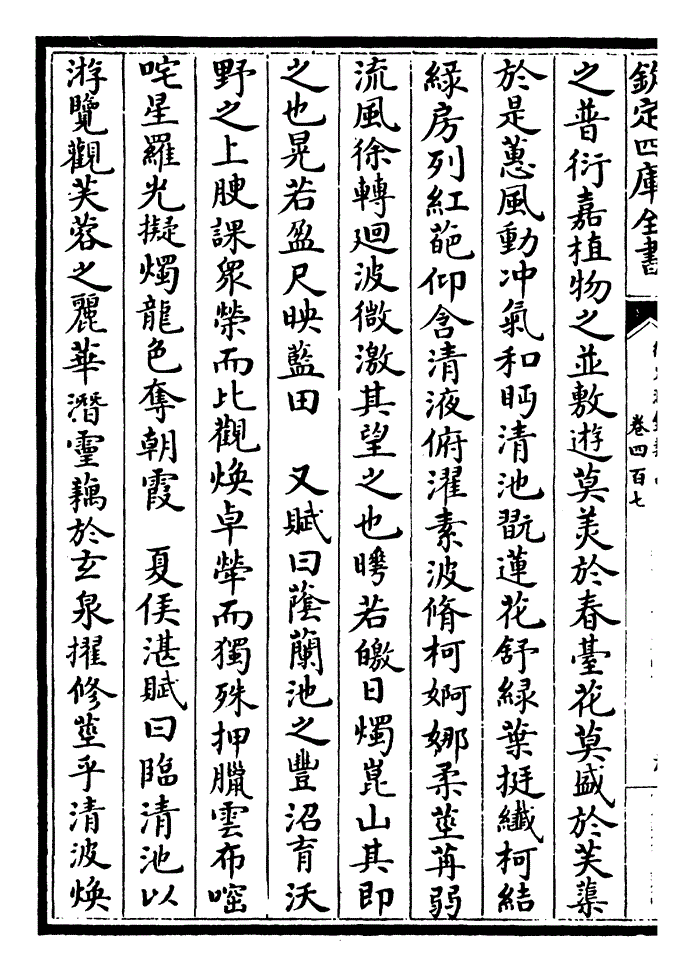 欽定四庫全書
卷四百七
之普衍嘉植物之並敷遊莫美於春臺花莫盛於芙蕖
於是蕙風動冲氣和眄清池翫蓮花舒綠葉挺纖柯結
綠房列紅葩仰含清液俯濯素波脩柯婀娜柔莖苒弱
流風徐轉廻波微激其望之也曄若皦日燭崑山其即
之也晃若盈尺映藍田　又賦曰蔭蘭池之豐沼育沃
野之上腴課衆榮而比觀煥卓犖而獨殊押臘雲布㗲
咤星羅光擬燭龍色奪朝霞　夏侯湛賦曰臨清池以
游覽觀芙蓉之麗華潛靈藕於玄泉擢修莖乎清波煥